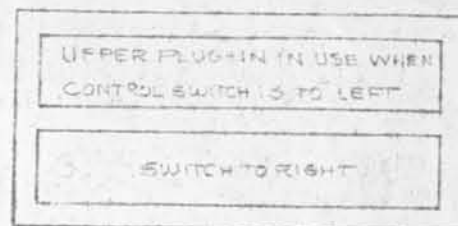 UPPER PLUG-IN IN USE WHEN
CONTROL SWITCH IS TO LEFT
SWITCH TO RIGHT